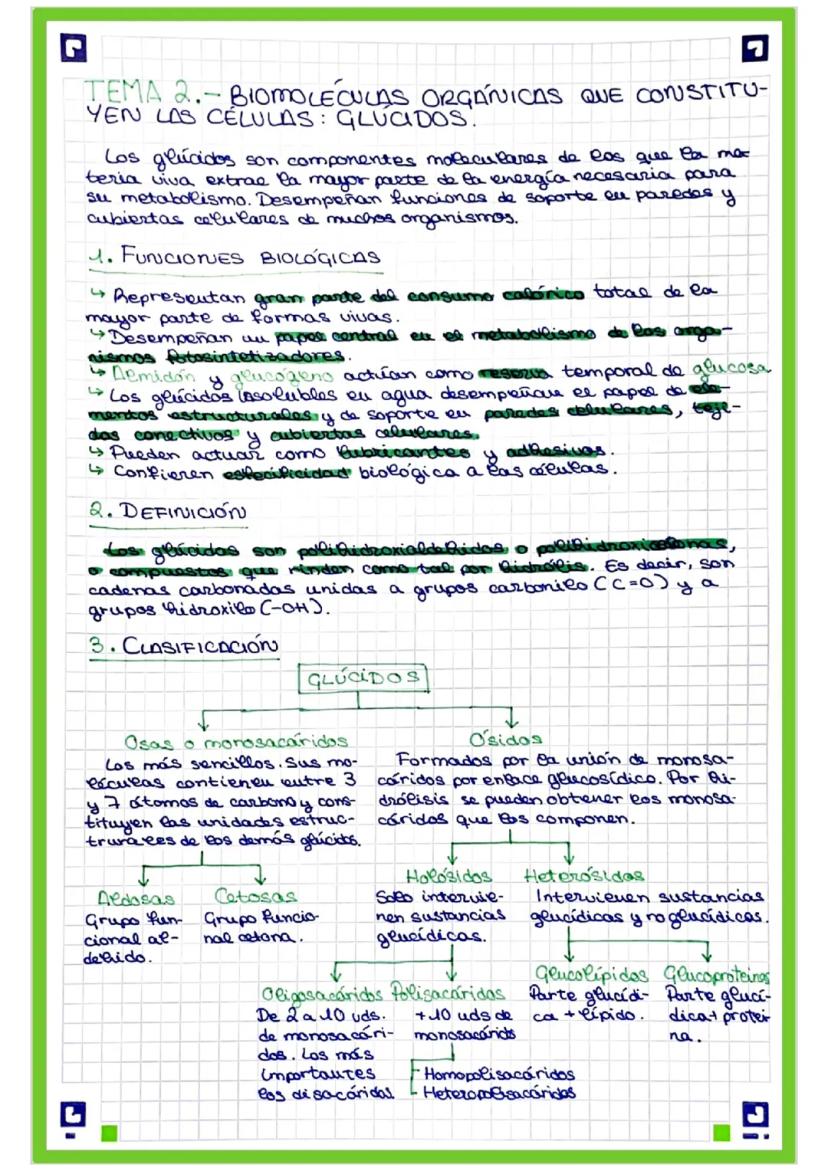 TEMA 2.- BIOMOLÉCULAS ORGÁNICAS QUE CONSTITU-
YEN LAS CÉLULAS: GLÚCIDOS.
Los glúcidos son componentes moleculares de los que la ma-
teria viva extrae la mayor parte de la energía necesaria para
su metabolismo. Desempeñan funciones de soporte en paredes y
cubiertas celulares de muchos organismos.
1. FUNCIONES BIOLÓGICAS
↳ Representan gran parte del consumo calórico total de la
mayor parte de formas vivas.
↳ Desempeñan un papel central en el metabolismo de los orga-
nismos fotosintetizadores.
↳ Almidón y glucógeno actúan como reserva temporal de glucosa
↳ Los glúcidos insolubles en agua desempeñan el papel de ele-
mentos estructurales y de soporte en paredes celulares, teji-
dos conectivos y cubiertas celulares.
↳ Pueden actuar como lubricantes y adhesivos.
↳ Confieren especificidad biológica a las células.
2. DEFINICIÓN
Los glúcidos son polihidroxialdehidos o polihidroxicetonas,
o compuestos que rinden como tal por hidrólis. Es decir, son
cadenas carbonadas unidas a grupos carbonilo (C=O) y a
grupos hidroxilo (-OH).
3. CLASIFICACIÓN
GLÚCIDOS
Osas o monosacáridos
Los más sencillos. Sus mo-
léculas contienen entre 3
y 7 átomos de carbono y cons-
tituyen las unidades estruc-
turales de los demás glúcidos.
Ósidos
Formados por la unión de monosa-
cáridos por enlace glucosídico. Por hi-
drólisis se pueden obtener los monosa-
cáridos que los componen.
Aldosas
Grupo fun-
cional al-
dehído.
Cetosas
Grupo funcio-
nal cetona.
Holósidos
Solo intervie-
nen sustancias
glucídicas.
Heterósidos
Intervienen sustancias
glucídicas y no glucídicas.
Oligosacáridos
De 2 a 10 uds.
de monosacári-
dos. Los más
importantes
los disacáridos
Polisacáridos
+10 uds de
monosacáridos
Homopolisacáridos
Heteropolisacáridos
Glucolípidos
Parte glucídi-
ca + lípido.
Glucoproteínas
Parte glucí-
dica + proteí-
na.